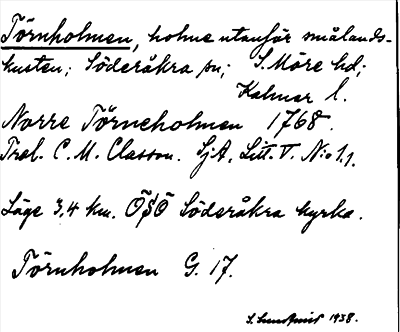 Törnholmen, holme utanför smålands-
kusten; Söderåkra sn; S. Möre hd;
Kalmar l.
Norre Törneholmen 1768.
Trol. C. M. Classon. SjA, Litt. V. No 1.1.
Läge 3,4 km. ÖSÖ Söderåkra kyrka.
Törnholmen G. 17.
S. Lundqvist 1938.